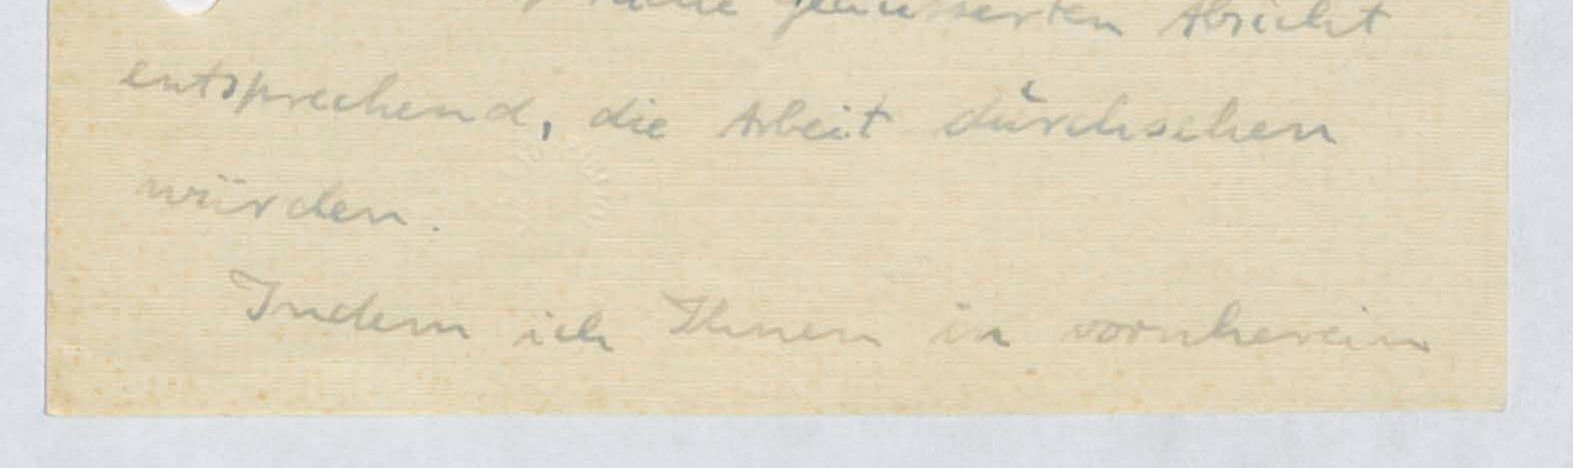 geäusserten Absicht
entsprechend, die Arbeit durchsehen
würden.
Indem ich Ihnen in vornherein